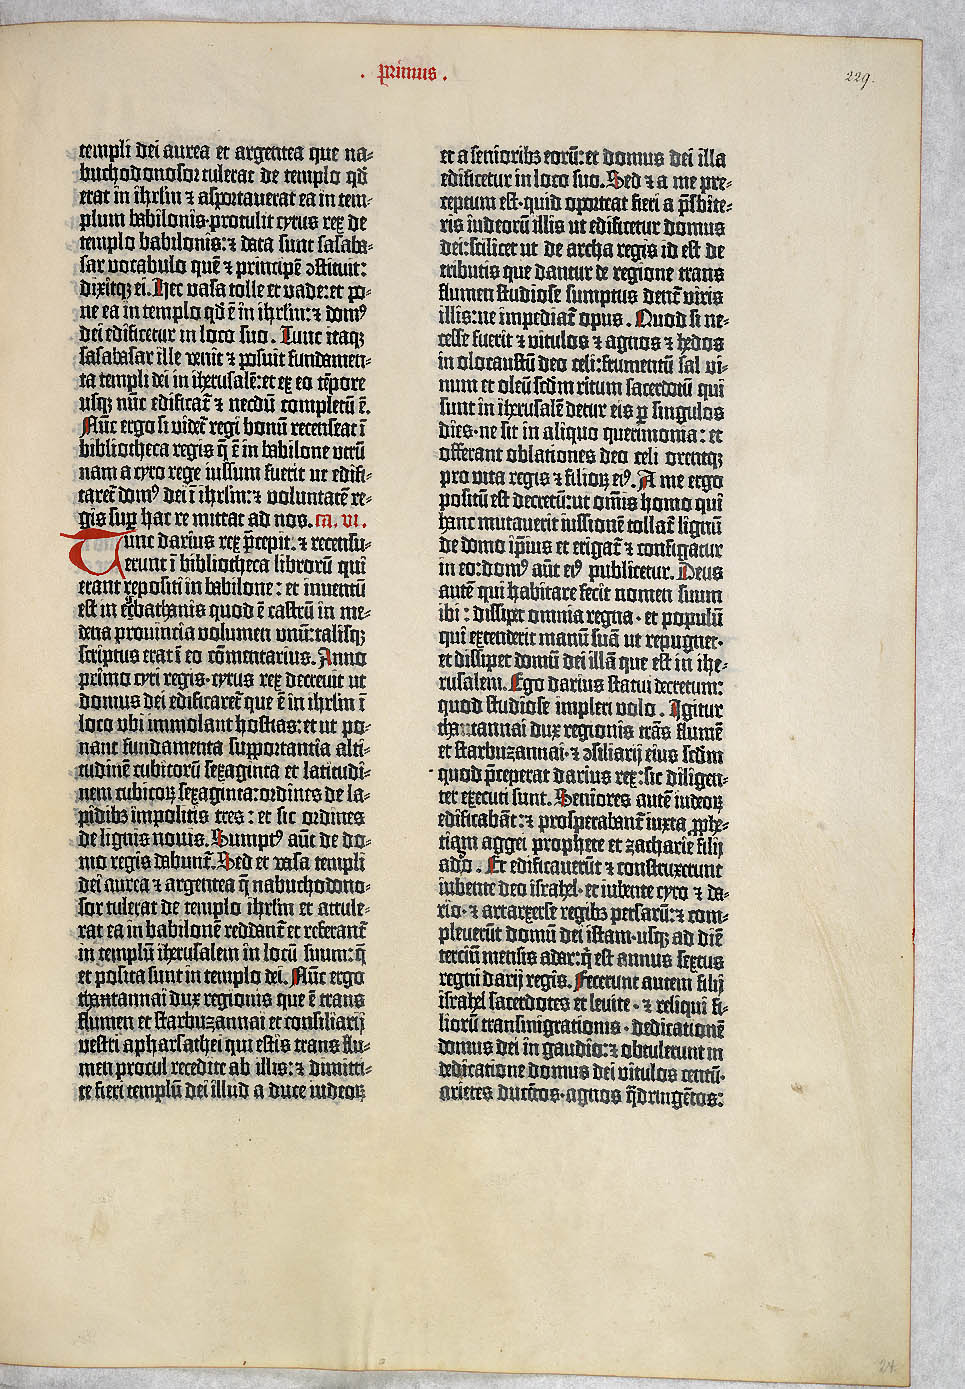 . Primus .
229.
templi dei aurea et argentea que na-
buchodonosor tulerat de templo qd̄
erat in ihrl̄m ⁊ asportauerat ea in tem-
plum babilonis·protulit cyrus rex de
templo babilonis: ⁊ data sunt sasaba-
sar vocabulo quē ⁊ principē ↄstituit:
dixitqꝫ ei. Hec vasa tolle et vade: et po-
ne ea in templo qd̄ ē in ihrl̄m: ⁊ domꝰ
dei edificetur in loco suo. Tunc itaqꝫ
sasabasar ille venit ⁊ posuit fundamen-
ta templi dei in iherusalē: et ex eo tēpore
usqꝫ nūc edificat̄ ⁊ necdū completū ē.
Nūc ergo si videt̄ regi bonū recenseat ī
bibliotheca regis q̄ ē in babilone vtrū
nam a cyro rege iussum fuerit ut edifi-
caret̄ domꝰ dei ī ihrl̄m: ⁊ voluntatē re-
gis suꝑ hac re mittat ad nos. ca. vi.
Tunc darius rex p̄cepit: ⁊ recensu-
erunt ī bibliotheca librorū qui
erant repositi in babilone: et inuentū
est in egbathanis quod ē castrū in me-
dena prouincia volumen vnū: talisqꝫ
scriptus erat ī eo cōmentarius. Anno
primo cyri regis·cyrus rex decreuit ut
domus dei edificaret̄ que ē in ihrl̄m ī
loco vbi immolant hostias: et ut po-
nant fundamenta supportantia alti-
tudinē cubitorū sexaginta et latitudi-
nem cubitoꝝ sexaginta: ordines de la-
pidibꝫ impolitis tres: et sic ordines
de lignis nouis. Sumptꝰ aūt de do-
mo regis dabunt̄. Sed et vasa templi
dei aurea ⁊ argentea q̄ nabuchodono-
sor tulerat de templo ihrl̄m et attule-
rat ea in babilonē reddant̄ et referant̄
in templū iherusalem in locū suum: q̄
et posita sunt in templo dei. Nūc ergo
thantannai dux regionis que ē trans
flumen et starbuzannai et consiliarij
vestri apharsathei qui estis trans flu-
men procul recedite ab illis: ⁊ dimitti-
te fieri templū dei illud a duce iudeoꝝ
et a senioribꝫ eorū: et domus dei illa
edificetur in loco suo. Sed ⁊ a me pre-
ceptum est·quid oporteat fieri a p̄sbite-
ris iudeorū illis ut edificetur domus
dei: scilicet ut de archa regis id est de
tributis que dantur de regione trans
flumen studiose sumptus dent̄ viris
illis: ne impediat̄ opus. Quod si ne-
cesse fuerit ⁊ vitulos ⁊ agnos ⁊ hedos
in olocaustū deo celi: frumentū sal vi-
num et oleū scd̄m ritum sacerdotū qui
sunt in iherusalē detur eis ꝑ singulos
dies·ne sit in aliquo querimonia: et
offerant oblationes deo celi orentqꝫ
pro vita regis ⁊ filioꝝ eiꝰ. A me ergo
positū est decretū: ut om̄is homo qui
hanc mutauerit iussionē tollat̄ lignū
de domo ip̄ius et erigat̄ ⁊ configatur
in eo: domꝰ aūt eiꝰ publicetur. Deus
autē qui habitare fecit nomen suum
ibi: dissipet omnia regna·et populū
qui extenderit manū suā ut repugnet·
et dissipet domū dei illā que est in ihe-
rusalem. Ego darius statui decretum:
quod studiose impleri volo. Igitur
thantannai dux regionis trās flumē
et starbuzannai·⁊ ↄsiliarij eius scd̄m
quod p̄ceperat darius rex: sic diligen-
ter executi sunt. Seniores autē iudeoꝝ
edificabāt: ⁊ prosperabant̄ iuxta ꝓphe-
tiam aggei prophete et zacharie filij
addo. Et edificauerūt ⁊ construxerunt
iubente deo israhel·et iubente cyro ⁊ da-
rio·⁊ artarxerse regibꝫ persarū: ⁊ com-
pleuerūt domū dei istam·usqꝫ ad diē
terciū mensis adar: q̄ est annus sextus
regni darij regis. Fecerunt autem filij
israhel sacerdotes et leuite·⁊ reliqui fi-
liorū transmigrationis·dedicationē
domus dei in gaudio: ⁊ obtulerunt in
dedicatione domus dei vitulos centū·
arietes ducētos·agnos q̄dringētos:
24